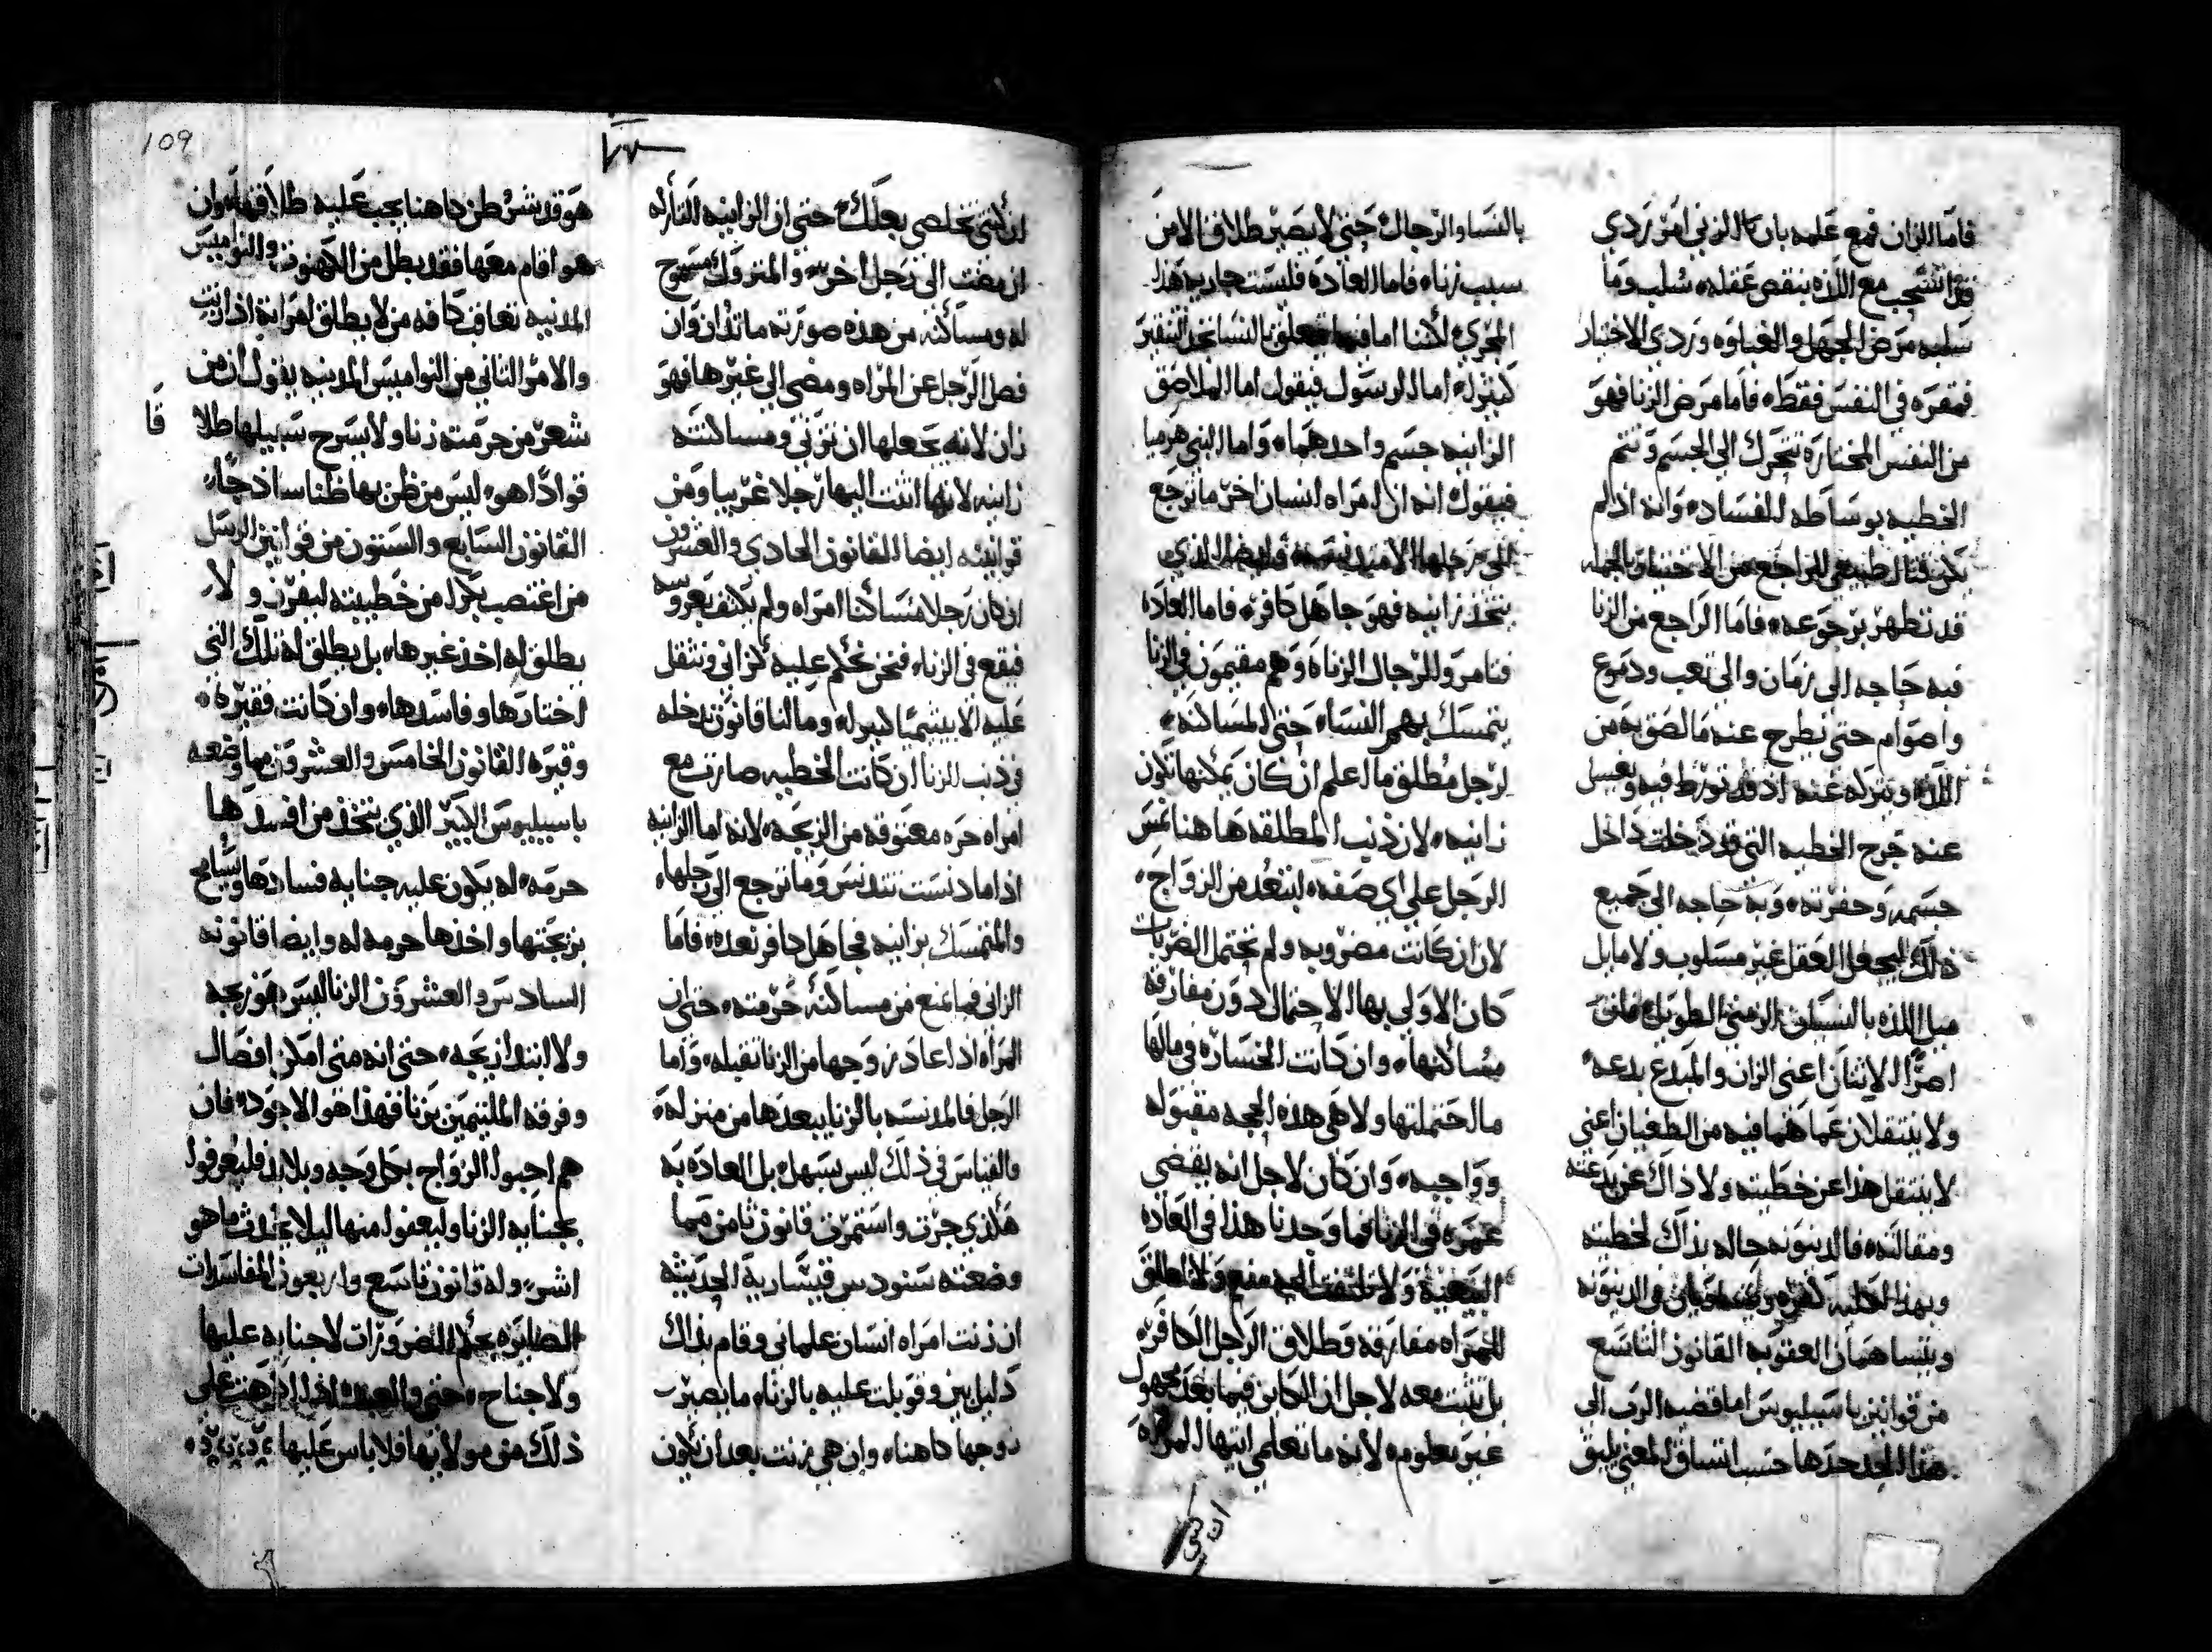 فاما الزان فمع علمه بان الزني امر ردي
فقد انتسحب مع اللذه بنقص عقله سلب وما
سلبه مرض الجهل والغباوه وردي الاختيار
فمقره في النفس فقط فاما مرض الزنا فهو
من النفس المختاره تتحرك الي الجسم وتتم
الخطيه بوساطه الفساد وانه اذا لم
يكن قتال طبيعي الراجع من
قد تطهر برجوعه فاما الراجع من الزنا
فبه حاجه الي زمان والي تعب ودموع
واصوام حتي يطرح عنه ما لصق به من
اللذه وتترك عنه اذ قد تورط فيه ويغسل
عنه جرح الخطيه التي قد دخلت داخل
جسمه وحفرته وبه حاجه الي جميع
ذلك ليجعل العقل غير مسلوب ولا مايل
ميل اللذه بالنسيان الزمني الطويل فان
اصرا الاثنان اعني الزان والمبدع بدعه
ولا ينتقلان عما هما فيه من الطغيان اعني
لا ينتقل هذا عن خطيته ولا ذاك عن بدعته
ومقالته فالدينونه حاله بذاك لخطيته
وبهذا في الدينونه
ويتساهمان العقوبه القانون التاسع
من قوانين باسيليوس اما قضيه الرب الي
هذا الحد حدها حسب اتساق المعني يليق
بالنسا والرجال حتي لا يصير طلاق الا من
سبب زناء فاما العاده فليست جاريه هذا
المجري لكننا اما فيما يتعلق بالنسا نجد التنقير
كثيرا اما الرسول فيقول اما الملاصق
الزانيه جسم واحد هما واما النبي هرميا
فيقول انه ان امراه لانسان اخر ما ترجع
الي رجلها الذي
يتخذ زانيه فهو جاهل كافر فاما العاده
فتامر والرجال الزناه وهم مقيمون في الزنا
يتمسك بهم النسا حتي المساكنه
لرجل مطلق ما اعلم ان كان يمكنها تكون
زانيه لان ذنب المطلقه هاهنا يمس
الرجل علي اي صفه ابتعد من الزواج
لان ان كانت مضروبه ولم تحتمل الضربات
كان الاولي بها الاحتمال دون مفارقة
مساكنها وان كانت الخساره في مالها
ما احتملتها ولا هي هذه الحجه مقبوله
وواجبه وان كان لاجل انه يقضي
عمره في الزنا فما وجدنا هذا في العاده
للمراه مفارقه وطلاق الرجل الكافر
بل تثبت معه لاجل ان الكاين فيما بعد مجهول
غير معلوم لانه ما تعلمي ايتها المراه
ان
109
ان كنتي تخلصي بعلك حتي ان الزانيه التاركه
ان مضت الي رجل اخر والمتروك مسموح
له ومساكنه من هذه صورته ما تدان وان
فصل الرجل عن المراه ومضي الي غيرها فهو
زان لانه يجعلها ان تزني ومساكنته
زانيه لانها اثنت اليها رجلا غريبا ومن
قوانينه ايضا القانون الحادي والعشرون
ان كان رجلا مساكنا امراه ولم يكتف بعروسه
فيقع في الزناء فنحن نحكم عليه كزاني ونثقل
عليه الابيتيميا كثيرا وما لنا قانون يدخله
في ذنب الزنا ان كانت الخطيه صارت مع
امراه حره معتوقه من الزيجه لانه اما الزانيه
اذا ما دنست تتدنس وما ترجع الي رجلها
والمتمسك بزانيه فجاهل كافر تعده فاما
الزاني فما يمنع من مساكنه حرمته حتي ان
المراه اذا عاد زوجها من الزنا تقبله واما
الرجل فالمدنسه بالزنا يبعدها من منزله
والقياس في ذلك ليس يسهل بل العاده به
هكذي جرت واستمرت قانون ثامن مما
وضعته سنودس قيساريه الحديثه
ان زنت امراه انسان علماني وقام بذلك
دليل بين وقوبلت عليه بالزنا ما يصير
زوجها كاهنا وان هي زنت بعد ان يكون
هو قد شرطن كاهنا يجب عليه طلاقها وان
هو اقام معها فقد بطل من الكهنوت والنواميس
المدنيه تعاقب كافه من لا يطلق امراته اذا زنت
والامر الثاني من النواميس المدنيه يقول ان من
شعر من حرمته زنا ولا يسرح سبيلها طلا قا
قوادا هو ليس من ظن بها ظنا ساذجا
القانون السابع والستون من قوانين الرسل
من اغتصب بكرا من خطيبته ليفرز ولا
يطلق له اخذ غيرها بل يطلق له تلك التي
اختارها وفاسدها وان كانت فقيره
وقيره القانون الخامس والعشرون مما وضعه
باسيليوس الكبير الذي يتخذ من افسدها
حرمه له يكون عليه جنايه فسادها ويسامح
بزيجتها واخذها حرمه له وايضا قانونه
السادس والعشرون الزنا ليس هو زيجه
ولا ابتدا زيجه حتي انه متي امكن افصال
وفرقه الملتيمين بزنا فهذا هو الاجود فان
هم احبوا الزواج بكل وجه وبلابد فليعرفوا
بجنايه الزنا وليعفوا منها ليلا يحدث ما هو
اشر وله قانون تاسع واربعون المفاسدات
الصايره بحكم الضرورات لا جنايه عليها
ولا جناح حتي والعبده اذا اكرهت علي
ذلك من مولاتها فلا باس عليها